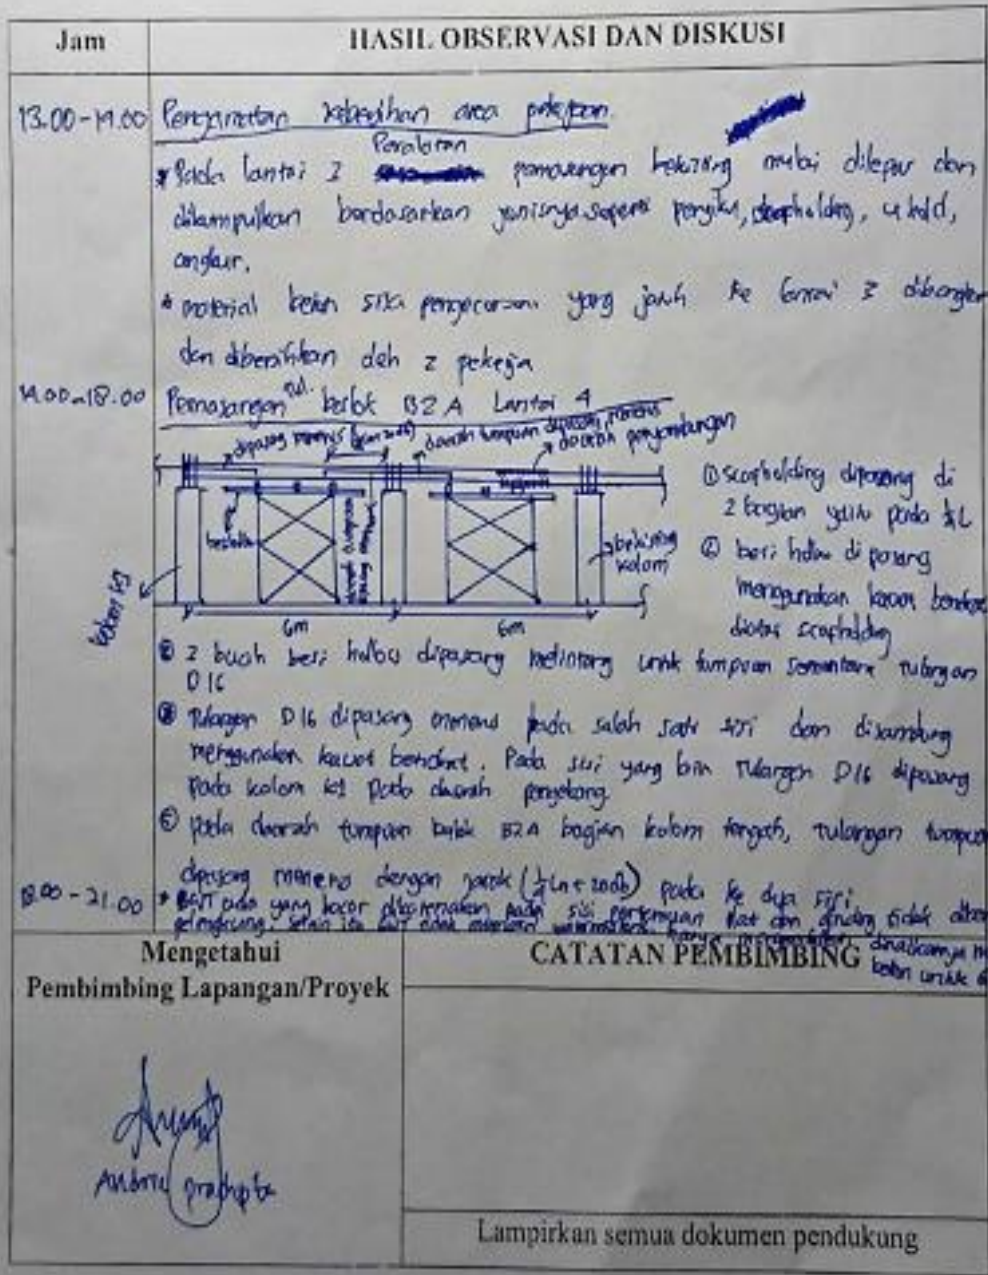 Jam
HASIL OBSERVASI DAN DISKUSI
13.00-14.00
Pengamatan kebersihan area pekerjaan
Peralatan
* Pada lantai 2 pemasangan bekisting mulai dilepas dan
dikumpulkan berdasarkan jenisnya seperti pengikat, scapholding, u head,
* material beton sisa pengecoran yang jatuh ke lantai 2
dan dibersihkan oleh 2 pekerja
14.00-18.00
Pemasangan tul. balok B2A Lantai 4
dipasang menerus
daerah tumpuan dipasang menerus
daerah penyambungan
bekisting
kolom
kolom
6m
6m
① scapholding dipasang di
2 bagian yaitu pada ¼L
② besi hollow dipasang
menggunakan kawat bendrat
diatas scapholding
2 buah besi hollow dipasang melintang untuk tumpuan sementara tulangan
D16
Tulangan D16 dipasang menerus pada salah satu sisi dan disambung
menggunakan kawat bendrat. Pada sisi yang lain Tulangan D16 dipasang
pada kolom pada daerah
⑤ pada daerah tumpuan balok B2A bagian kolom tengah, tulangan tumpuan
dipasang menerus dengan jarak pada ke dua sisi
18.00-21.00
* pada yang bocor dikarenakan pada sisi pertemuan plat dan dinding tidak
beton untuk
Mengetahui
Pembimbing Lapangan/Proyek
CATATAN PEMBIMBING
Lampirkan semua dokumen pendukung